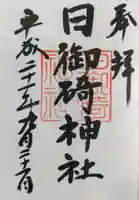 奉拝
日御碕神社
平成二十年月二十日